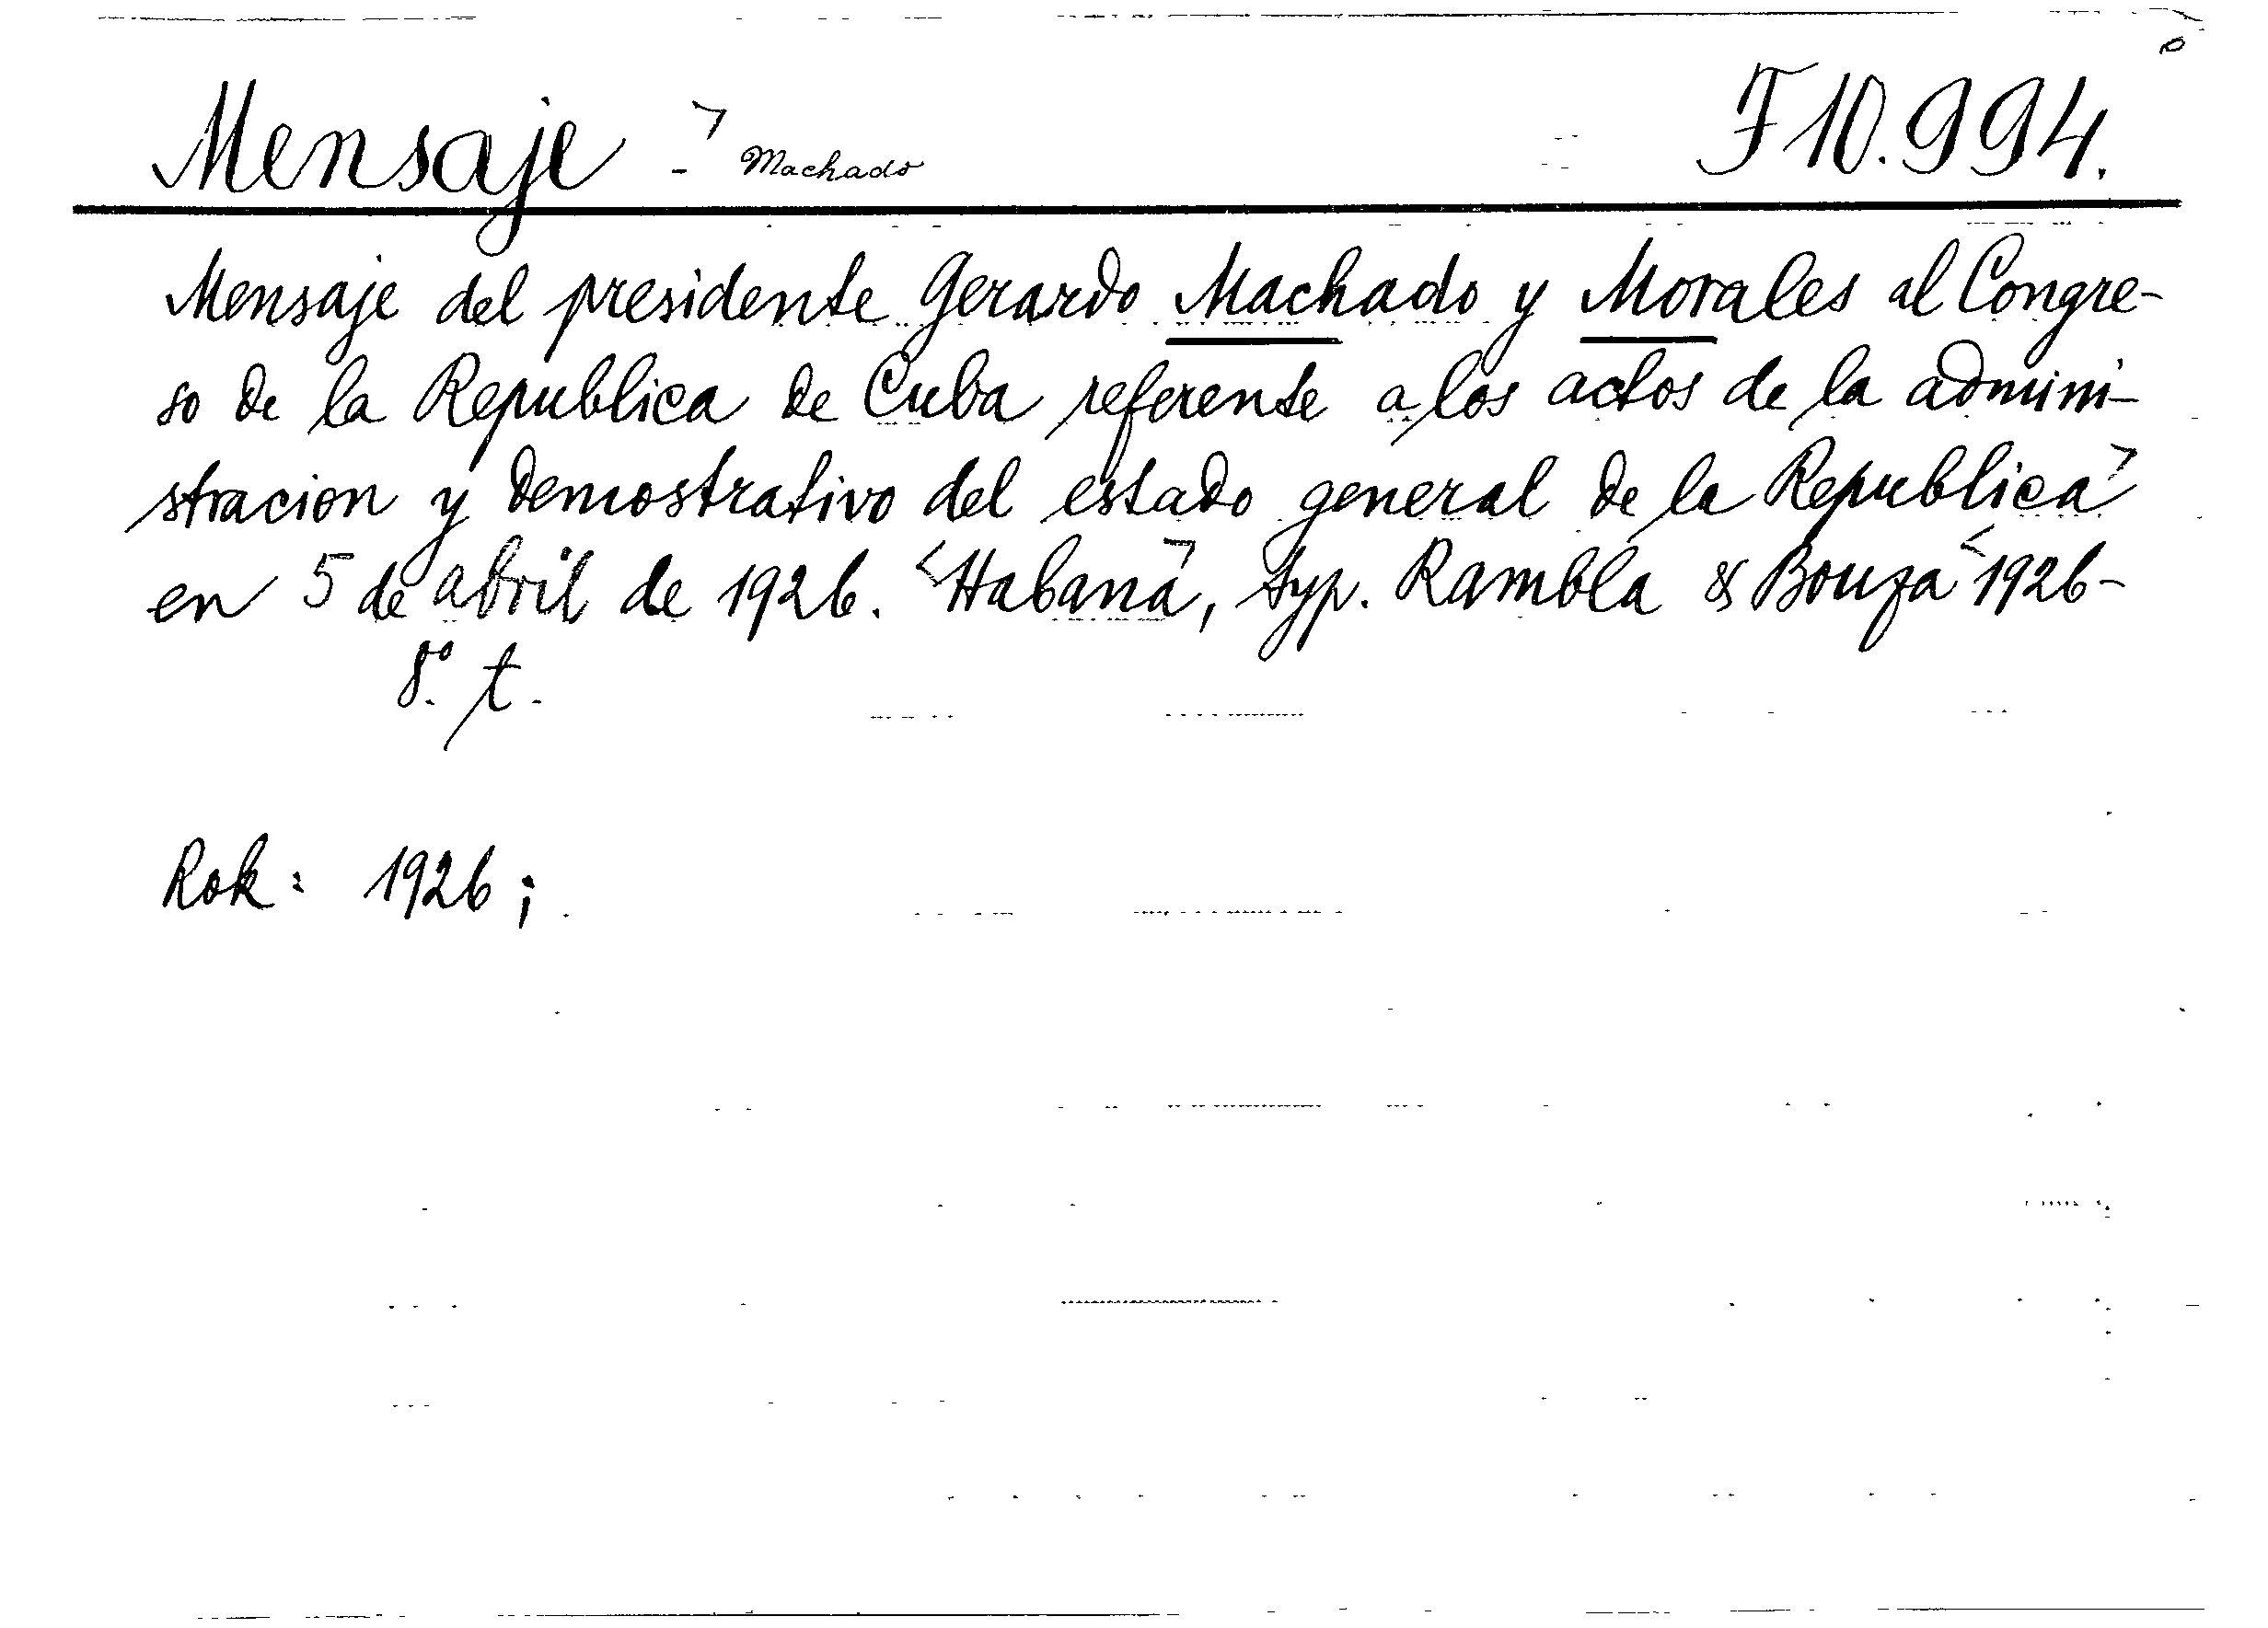 Mensaje - Machado F10.994.
Mensaje del presidente Gerardo Machado y Morales al Congre-
so de la Republica de Cuba referente a los actos de la admini-
stracion y demostrativo del estado general de la Republica
en 5 de abril de 1926. Habana, typ. Rambla & Bouza 1926-
8º. t.
Rok: 1926;